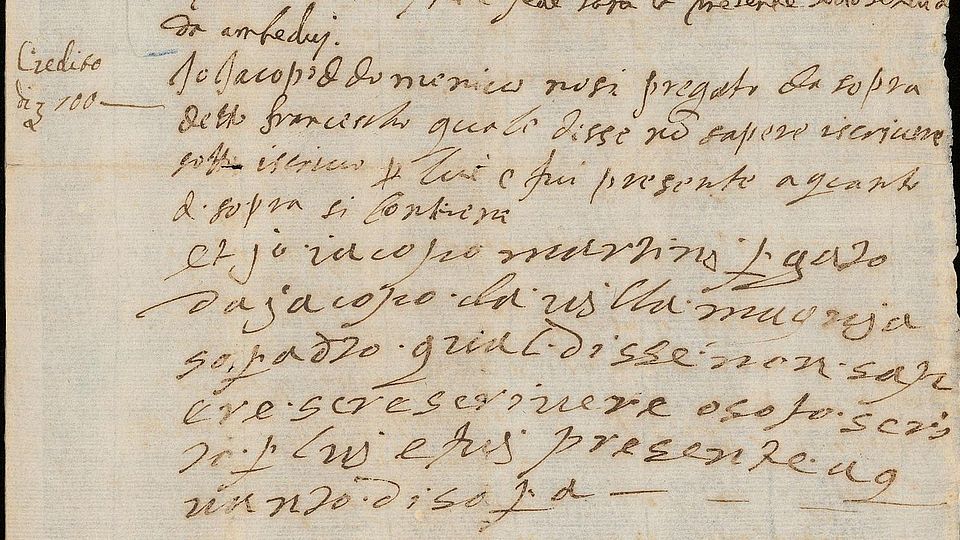 fede sara la presente sotto scritta
da ambeduj.
Credito
di 100
Jo Jacopo d domenico nosi pregato da sopra
detto francescho quale disse nō sapere iscrivere
sotto iscrivo p lui e fui presente a quanto
di sopra si Contiene
et jo iacopo martinj p gato
da jacopo da villa
sopadto qual disse non sap
ere scrivere o soto scri
to p luj e fuj presente a q
uanto di sopa